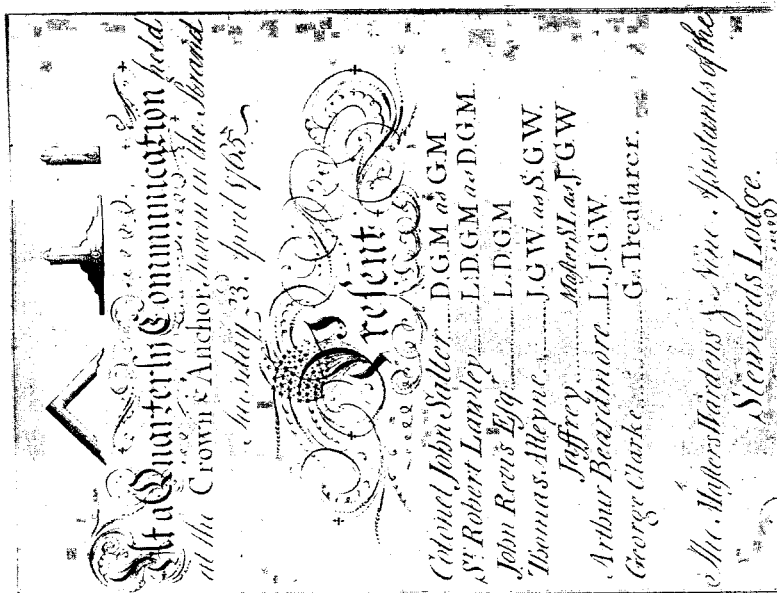 At a Quarterly Communication held
at the Crown & Anchor Tavern in the Strand
Tuesday 23. April 1765
Present
Colonel John Salter ..... D G M as G M
Sr. Robert Lawley ..... L. D. G M as D. G M.
John Revis Esqr. ..... L. D. G M
Thomas Alleyne ..... J. G W. as S. G W.
Jaffrey ..... Master S.L as J G W
Arthur Beardmore ..... L. J. G. W.
George Clarke ..... G. Treasurer.
The Masters Wardens & Nine Assistants of the
Stewards Lodge.